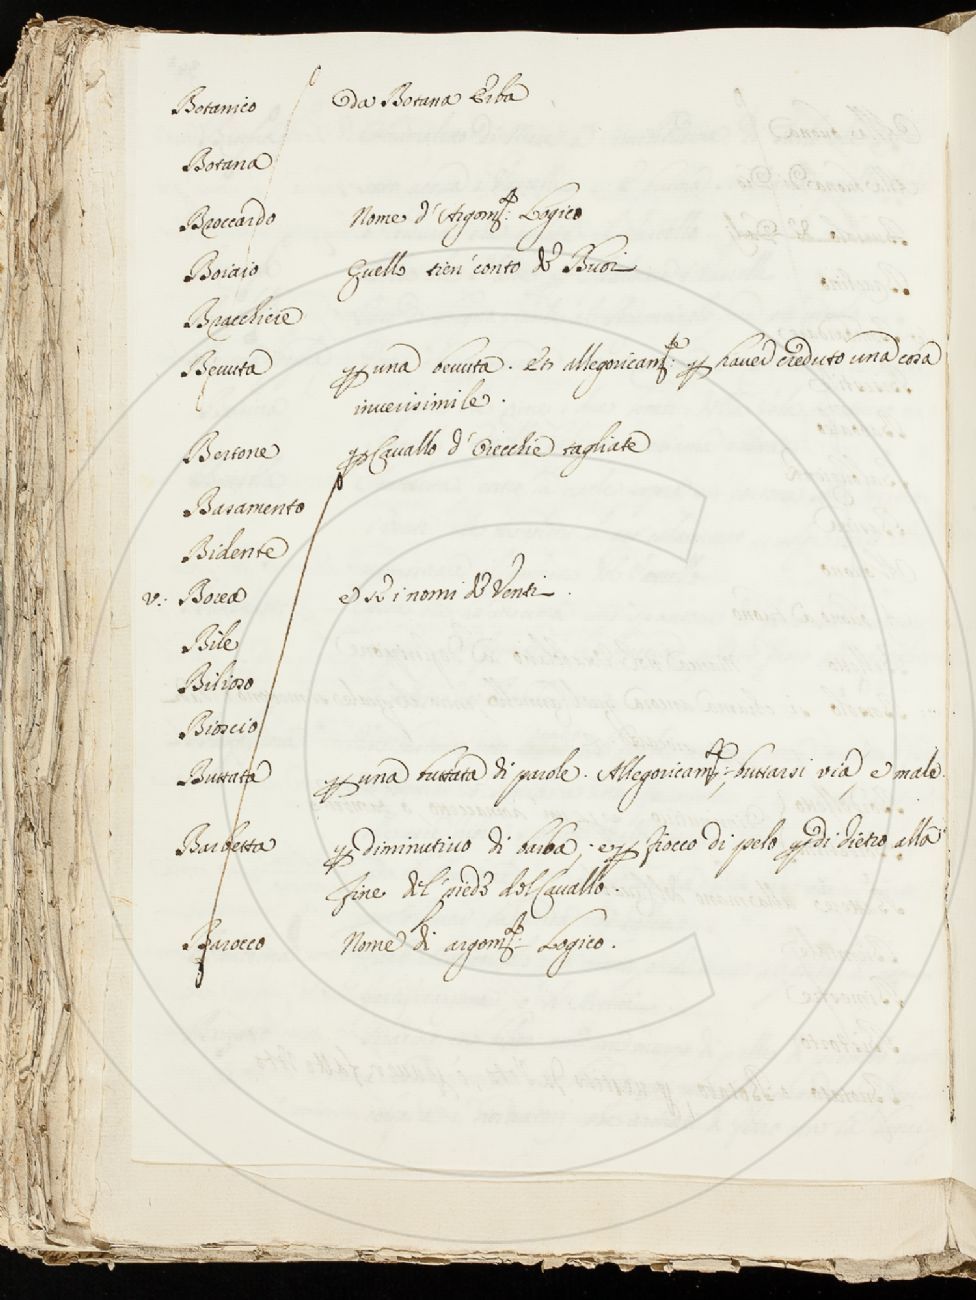 Botanico Da Botana Erba
Botana
Broccardo Nome d'Argom:te Logico
Boiaio Quello tien conto de Buoi
Bracchiere
Bevuta p una bevuta. Et allegoricam:te p haver creduto una cosa
inverisimile.
Bertone p Cavallo d'orecchie tagliate
Basamento
Bidente
v: Borea e di i nomi de Venti.
Bile
Bilioso
Bioscio
Buttata p una buttata di parole. Allegoricam:te, buttarsi via, e male.
Barbetta p diminutivo di barba, e p fiocco di pelo p di dietro alla
fine del piede del Cavallo.
Barocco Nome di argom:to Logico.